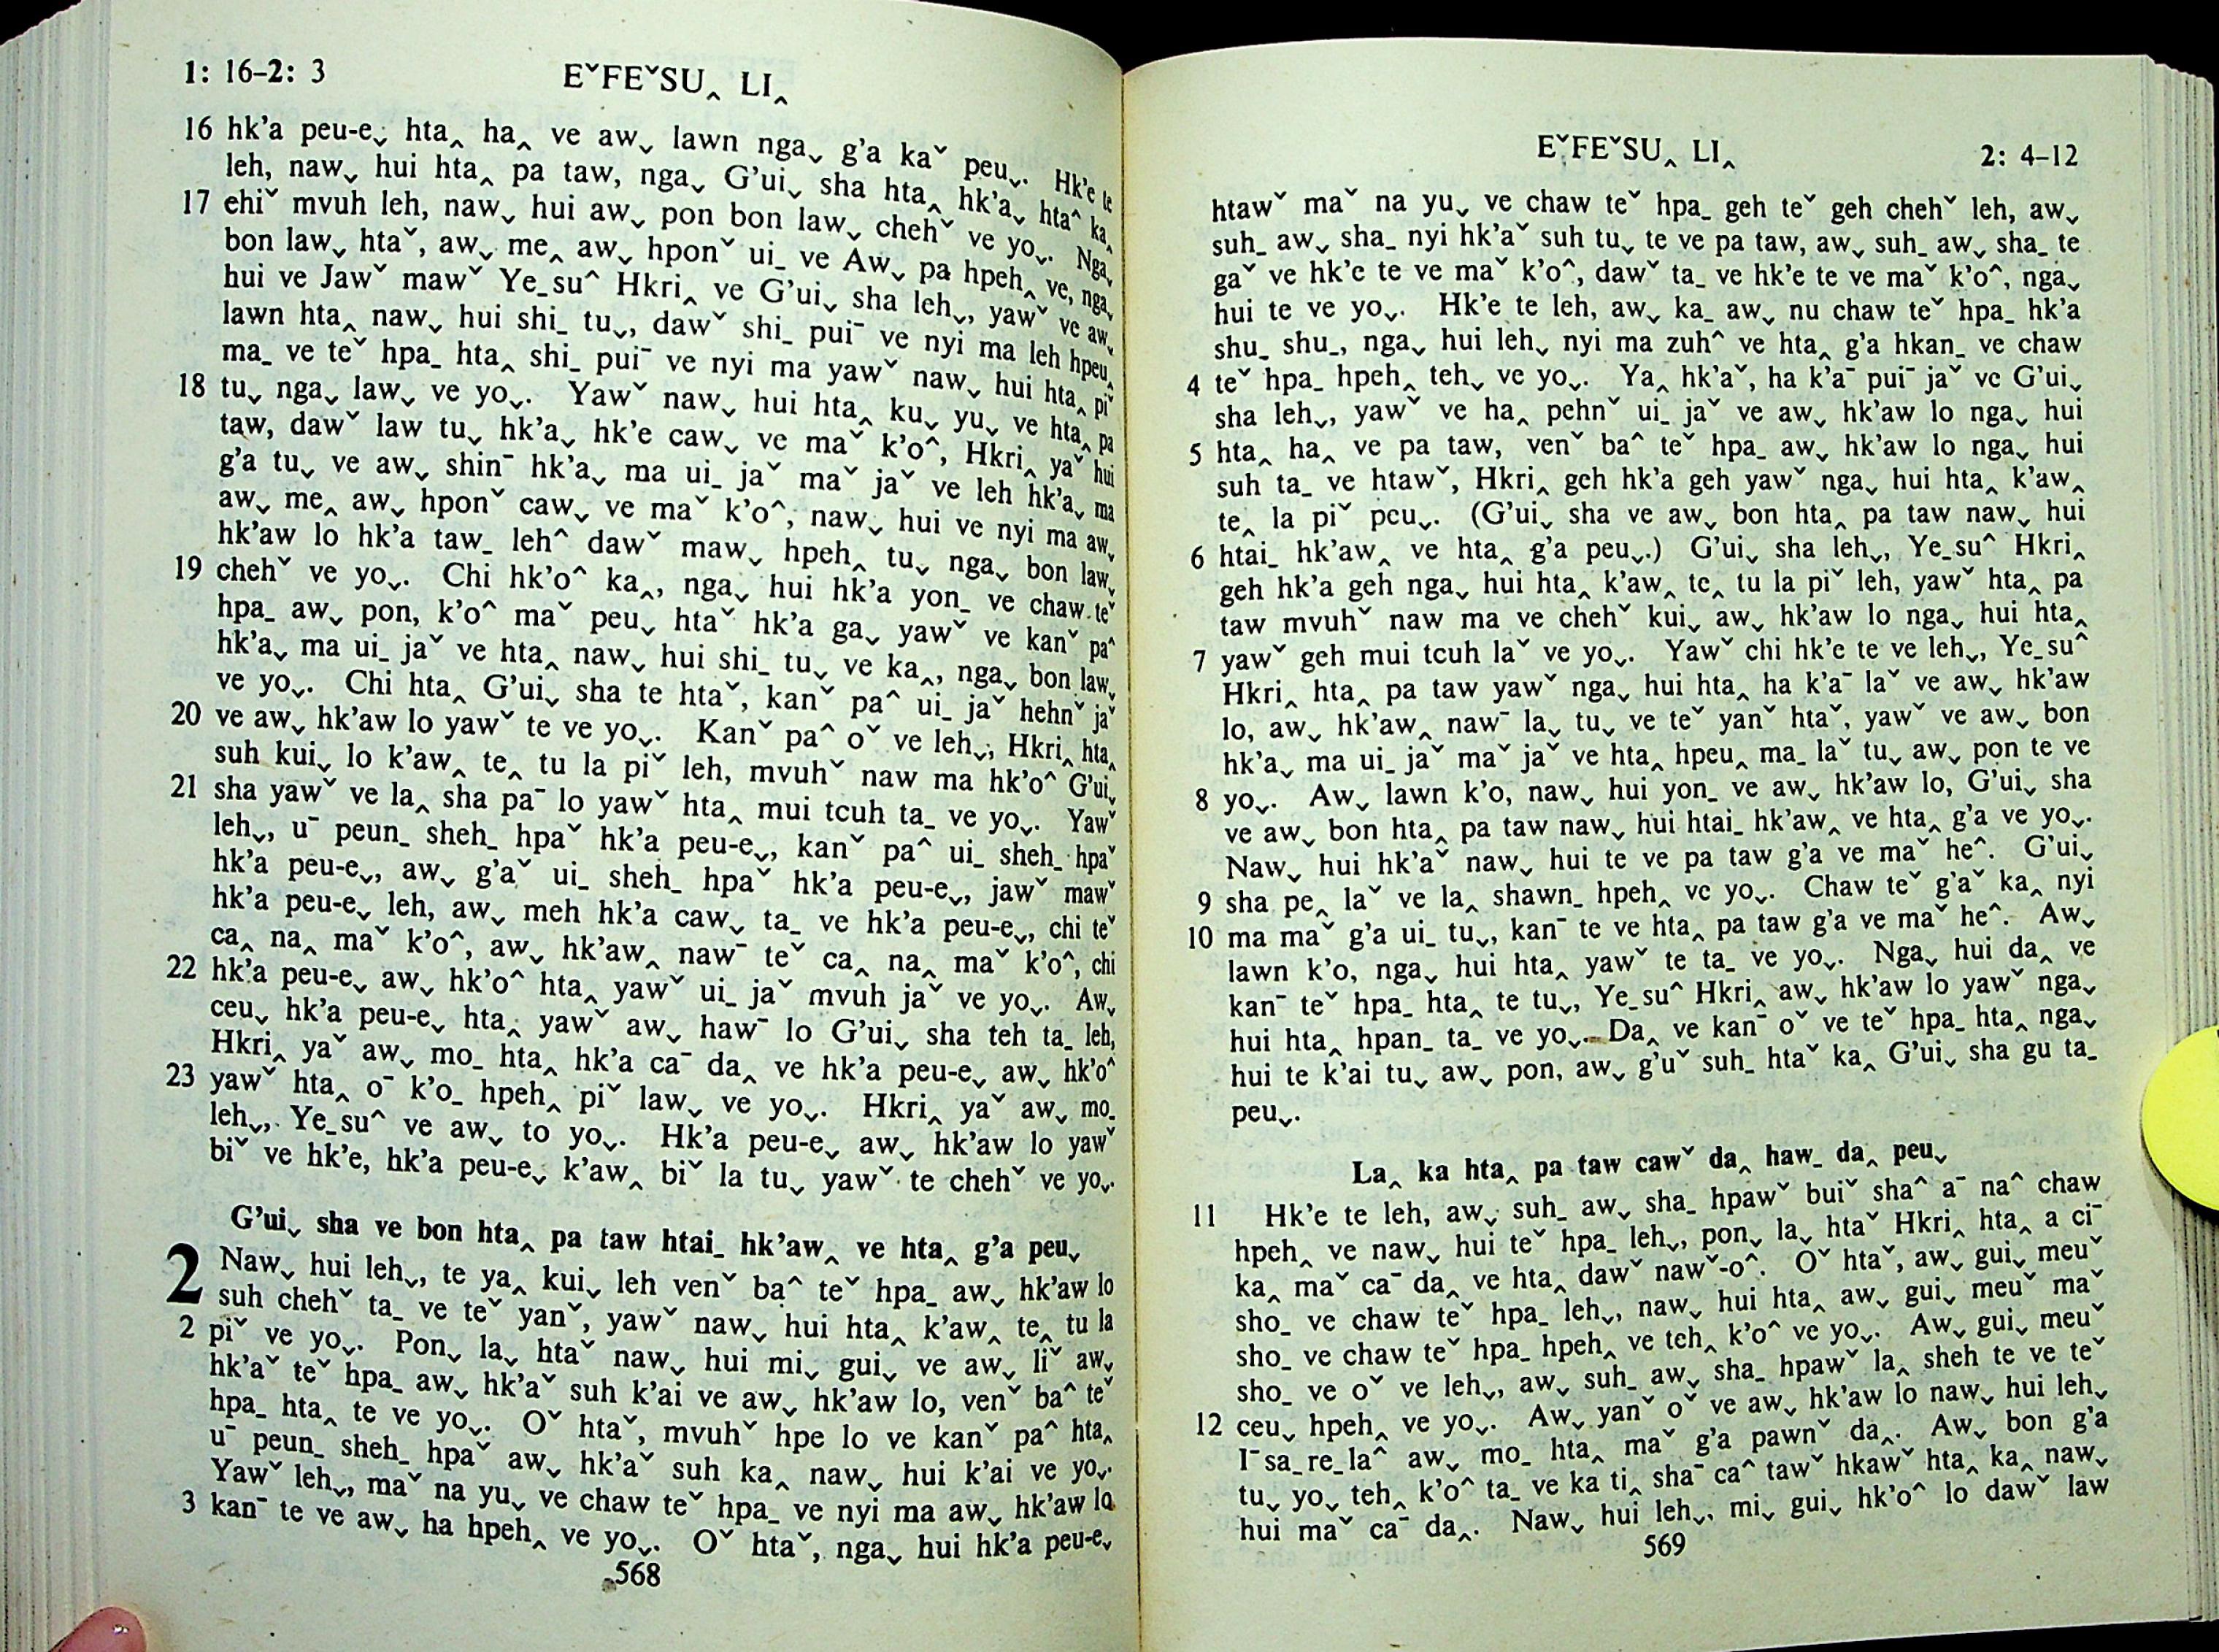 1: 16–2: 3
EˇFEˇSU‸ LI‸
16 hk’a peu-eˬ hta‸ ha‸ ve awˬ lawn ngaˬ g’a kaˇ peuˬ. Hk’e te
leh, nawˬ hui hta‸ pa taw, ngaˬ G’uiˬ sha hta‸ hk’aˬ htaˆ ka‸
17 chiˇ mvuh leh, nawˬ hui awˬ pon bon lawˬ chehˇ ve yoˬ. Ngaˬ
bon lawˬ htaˇ, awˬ me‸ awˬ hponˇ ui_ ve Awˬ pa hpeh‸ ve, ngaˬ
hui ve Jawˇ mawˇ Ye_suˆ Hkri‸ ve G’uiˬ sha lehˬ, yawˇ ve awˬ
lawn hta‸ nawˬ hui shi_ tuˬ, dawˇ shi_ puiˉ ve nyi ma leh hpeu‸
ma_ ve teˇ hpa_ hta‸ shi_ puiˉ ve nyi ma yawˇ nawˬ hui hta‸ piˇ
18 tuˬ ngaˬ lawˬ ve yoˬ. Yawˇ nawˬ hui hta‸ kuˬ yuˬ ve hta‸ pa
taw, dawˇ law tuˬ hk’aˬ hk’e cawˬ ve maˇ k’oˆ, Hkri‸ yaˇ hui
g’a tuˬ ve awˬ shinˉ hk’aˬ ma ui_ jaˇ maˇ jaˇ ve leh hk’aˬ ma
awˬ me‸ awˬ hponˇ cawˬ ve maˇ k’oˆ, nawˬ hui ve nyi ma awˬ
hk’aw lo hk’a taw_ lehˆ dawˇ mawˬ hpeh‸ tuˬ ngaˬ bon lawˬ
19 chehˇ ve yoˬ. Chi hk’oˆ ka‸, ngaˬ hui hk’a yon_ ve chaw teˇ
hpa_ awˬ pon, k’oˆ maˇ peuˬ htaˇ hk’a gaˬ yawˇ ve kanˇ paˆ
hk’aˬ ma ui_ jaˇ ve hta‸ nawˬ hui shi_ tuˬ ve ka‸, ngaˬ bon lawˬ
ve yoˬ. Chi hta‸ G’uiˬ sha te htaˇ, kanˇ paˆ ui_ jaˇ hehnˇ jaˇ
20 ve awˬ hk’aw lo yawˇ te ve yoˬ. Kanˇ paˆ oˇ ve lehˬ, Hkri‸ hta‸
suh kuiˬ lo k’aw‸ te‸ tu la piˇ leh, mvuhˇ naw ma hk’oˆ G’uiˬ
21 sha yawˇ ve la‸ sha paˉ lo yawˇ hta‸ mui tcuh ta_ ve yoˬ. Yawˇ
lehˬ, uˉ peun_ sheh_ hpaˇ hk’a peu-eˬ, kanˇ paˆ ui_ sheh_ hpaˇ
hk’a peu-eˬ, awˬ g’aˇ ui_ sheh_ hpaˇ hk’a peu-eˬ, jawˇ mawˇ
hk’a peu-eˬ leh, awˬ meh hk’a cawˬ ta_ ve hk’a peu-eˬ, chi teˇ
ca‸ na‸ maˇ k’oˆ, awˬ hk’aw‸ nawˉ teˇ ca‸ na‸ maˇ k’oˆ, chi
22 hk’a peu-eˬ awˬ hk’oˆ hta‸ yawˇ ui_ jaˇ mvuh jaˇ ve yoˬ. Awˬ
ceuˬ hk’a peu-eˬ hta‸ yawˇ awˬ hawˉ lo G’uiˬ sha teh ta_ leh,
Hkri‸ yaˇ awˬ mo_ hta‸ hk’a caˉ da‸ ve hk’a peu-eˬ awˬ hk’oˆ
23 yawˇ hta‸ oˉ k’o_ hpeh‸ piˇ lawˬ ve yoˬ. Hkri‸ yaˇ awˬ mo_
lehˬ, Ye_suˆ ve awˬ to yoˬ. Hk’a peu-eˬ awˬ hk’aw lo yawˇ
biˇ ve hk’e, hk’a peu-eˬ k’aw‸ biˇ la tuˬ yawˇ te chehˇ ve yoˬ.
G’uiˬ sha ve bon hta‸ pa taw htai_ hk’aw‸ ve hta‸ g’a peuˬ
2 Nawˬ hui lehˬ, te ya‸ kuiˬ leh venˇ baˆ teˇ hpa_ awˬ hk’aw lo
suh chehˇ ta_ ve teˇ yanˇ, yawˇ nawˬ hui hta‸ k’aw‸ te‸ tu la
2 piˇ ve yoˬ. Ponˬ laˬ htaˇ nawˬ hui miˬ guiˬ ve awˬ liˇ awˬ
hk’aˇ teˇ hpa_ awˬ hk’aˇ suh k’ai ve awˬ hk’aw lo, venˇ baˆ teˇ
hpa_ hta‸ te ve yoˬ. Oˇ htaˇ, mvuhˇ hpe lo ve kanˇ paˆ hta‸
uˉ peun_ sheh_ hpaˇ awˬ hk’aˇ suh ka‸ nawˬ hui k’ai ve yoˬ.
Yawˇ lehˬ, maˇ na yuˬ ve chaw teˇ hpa_ ve nyi ma awˬ hk’aw lo
3 kanˉ te ve awˬ ha hpeh‸ ve yoˬ. Oˇ htaˇ, ngaˬ hui hk’a peu-eˬ
568
EˇFEˇSU‸ LI‸
2: 4–12
htawˇ maˇ na yuˬ ve chaw teˇ hpa_ geh teˇ geh chehˇ leh, awˬ
suh_ awˬ sha_ nyi hk’aˇ suh tuˬ te ve pa taw, awˬ suh_ awˬ sha_ te
gaˇ ve hk’e te ve maˇ k’oˆ, dawˇ ta_ ve hk’e te ve maˇ k’oˆ, ngaˬ
hui te ve yoˬ. Hk’e te leh, awˬ ka_ awˬ nu chaw teˇ hpa_ hk’a
shu_ shu_, ngaˬ hui lehˬ nyi ma zuhˆ ve hta‸ g’a hkan_ ve chaw
4 teˇ hpa_ hpeh‸ tehˬ ve yoˬ. Ya‸ hk’aˇ, ha k’aˉ puiˉ jaˇ ve G’uiˬ
sha lehˬ, yawˇ ve ha‸ pehnˇ ui_ jaˇ ve awˬ hk’aw lo ngaˬ hui
5 hta‸ ha‸ ve pa taw, venˇ baˆ teˇ hpa_ awˬ hk’aw lo ngaˬ hui
suh ta_ ve htawˇ, Hkri‸ geh hk’a geh yawˇ ngaˬ hui hta‸ k’aw‸
te‸ la piˇ peuˬ. (G’uiˬ sha ve awˬ bon hta‸ pa taw nawˬ hui
6 htai_ hk’aw‸ ve hta‸ g’a peuˬ.) G’uiˬ sha lehˬ, Ye_suˆ Hkri‸
geh hk’a geh ngaˬ hui hta‸ k’aw‸ te‸ tu la piˇ leh, yawˇ hta‸ pa
taw mvuhˇ naw ma ve chehˇ kuiˬ awˬ hk’aw lo ngaˬ hui hta‸
7 yawˇ geh mui tcuh laˇ ve yoˬ. Yawˇ chi hk’e te ve lehˬ, Ye_suˆ
Hkri‸ hta‸ pa taw yawˇ ngaˬ hui hta‸ ha k’aˉ laˇ ve awˬ hk’aw
lo, awˬ hk’aw‸ nawˉ laˬ tuˬ ve teˇ yanˇ htaˇ, yawˇ ve awˬ bon
hk’aˬ ma ui_ jaˇ maˇ jaˇ ve hta‸ hpeu‸ ma_ laˇ tuˬ awˬ pon te ve
8 yoˬ. Awˬ lawn k’o, nawˬ hui yon_ ve awˬ hk’aw lo, G’uiˬ sha
ve awˬ bon hta‸ pa taw nawˬ hui htai_ hk’aw‸ ve hta‸ g’a ve yoˬ.
Nawˬ hui hk’aˇ nawˬ hui te ve pa taw g’a ve maˇ heˆ. G’uiˬ
9 sha pe‸ laˇ ve la‸ shawn_ hpeh‸ ve yoˬ. Chaw teˇ g’aˇ ka‸ nyi
10 ma maˇ g’a ui_ tuˬ, kanˉ te ve hta‸ pa taw g’a ve maˇ heˆ. Awˬ
lawn k’o, ngaˬ hui hta‸ yawˇ te ta_ ve yoˬ. Ngaˬ hui da‸ ve
kanˉ teˇ hpa_ hta‸ te tuˬ, Ye_suˆ Hkri‸ awˬ hk’aw lo yawˇ ngaˬ
hui hta‸ hpan_ ta_ ve yoˬ. Da‸ ve kanˉ oˇ ve teˇ hpa_ hta‸ ngaˬ
hui te k’ai tuˬ awˬ pon, awˬ g’uˇ suh_ htaˇ ka‸ G’uiˬ sha gu ta_
peuˬ.
La‸ ka hta‸ pa taw cawˇ da‸ haw_ da‸ peuˬ
11 Hk’e te leh, awˬ suh_ awˬ sha_ hpawˇ buiˇ shaˆ aˉ naˆ chaw
hpeh‸ ve nawˬ hui teˇ hpa_ lehˬ, ponˬ laˬ htaˇ Hkri‸ hta‸ a ciˉ
ka‸ maˇ caˉ da‸ ve hta‸ dawˇ nawˇ-oˆ. Oˇ htaˇ, awˬ guiˬ meuˇ
sho_ ve chaw teˇ hpa_ lehˬ, nawˬ hui hta‸ awˬ guiˬ meuˇ maˇ
sho_ ve chaw teˇ hpa_ hpeh‸ ve teh‸ k’oˆ ve yoˬ. Awˬ guiˬ meuˇ
sho_ ve oˇ ve lehˬ, awˬ suh_ awˬ sha_ hpawˇ la‸ sheh te ve teˇ
12 ceuˬ hpeh‸ ve yoˬ. Awˬ yanˇ oˇ ve awˬ hk’aw lo nawˬ hui lehˬ
Iˉsa_re_laˆ awˬ mo_ hta‸ maˇ g’a pawnˇ da‸. Awˬ bon g’a
tuˬ yoˬ teh‸ k’oˆ ta_ ve ka ti‸ shaˉ caˆ tawˇ hkawˇ hta‸ ka‸ nawˬ
hui maˇ caˉ da‸. Nawˬ hui lehˬ, miˬ guiˬ hk’oˆ lo dawˇ law
569